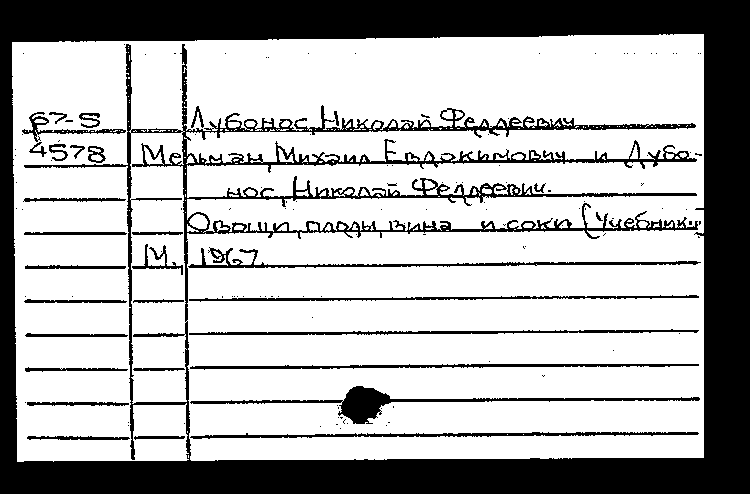 67-5 Дубонос, Николай Федеевич
4578 Мельман, Михаил Евдокимович и Дубо-
нос, Николай Федеевич.
Овощи, плоды, вина и соки (Учебники
М. 1967.